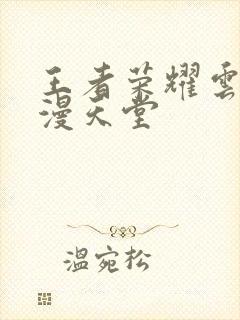 王者荣耀雲
漫天堂
温宛松